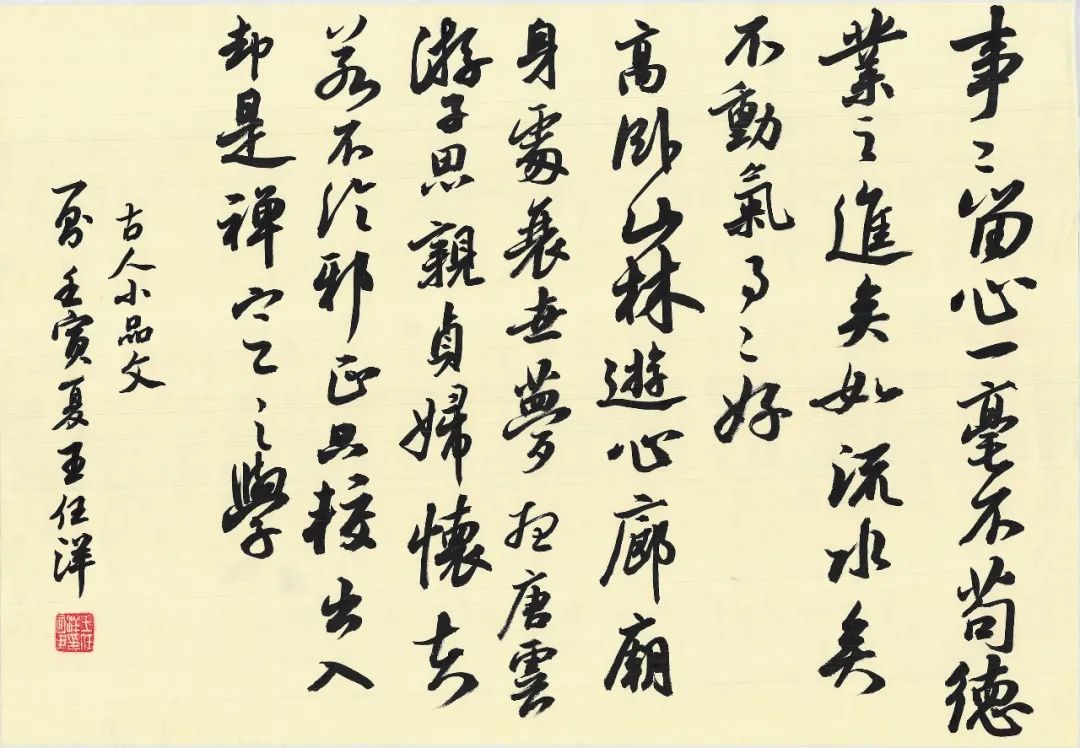 事〻留心一毫不苟德
業之進矣如流水矣
不動氣事〻好
高卧山林遊心廊廟
身處衰世夢想唐虞
游子思親貞婦懷夫
若不論邪正只較出入
却是禅定之學
古人小品文
壬寅夏王任洋